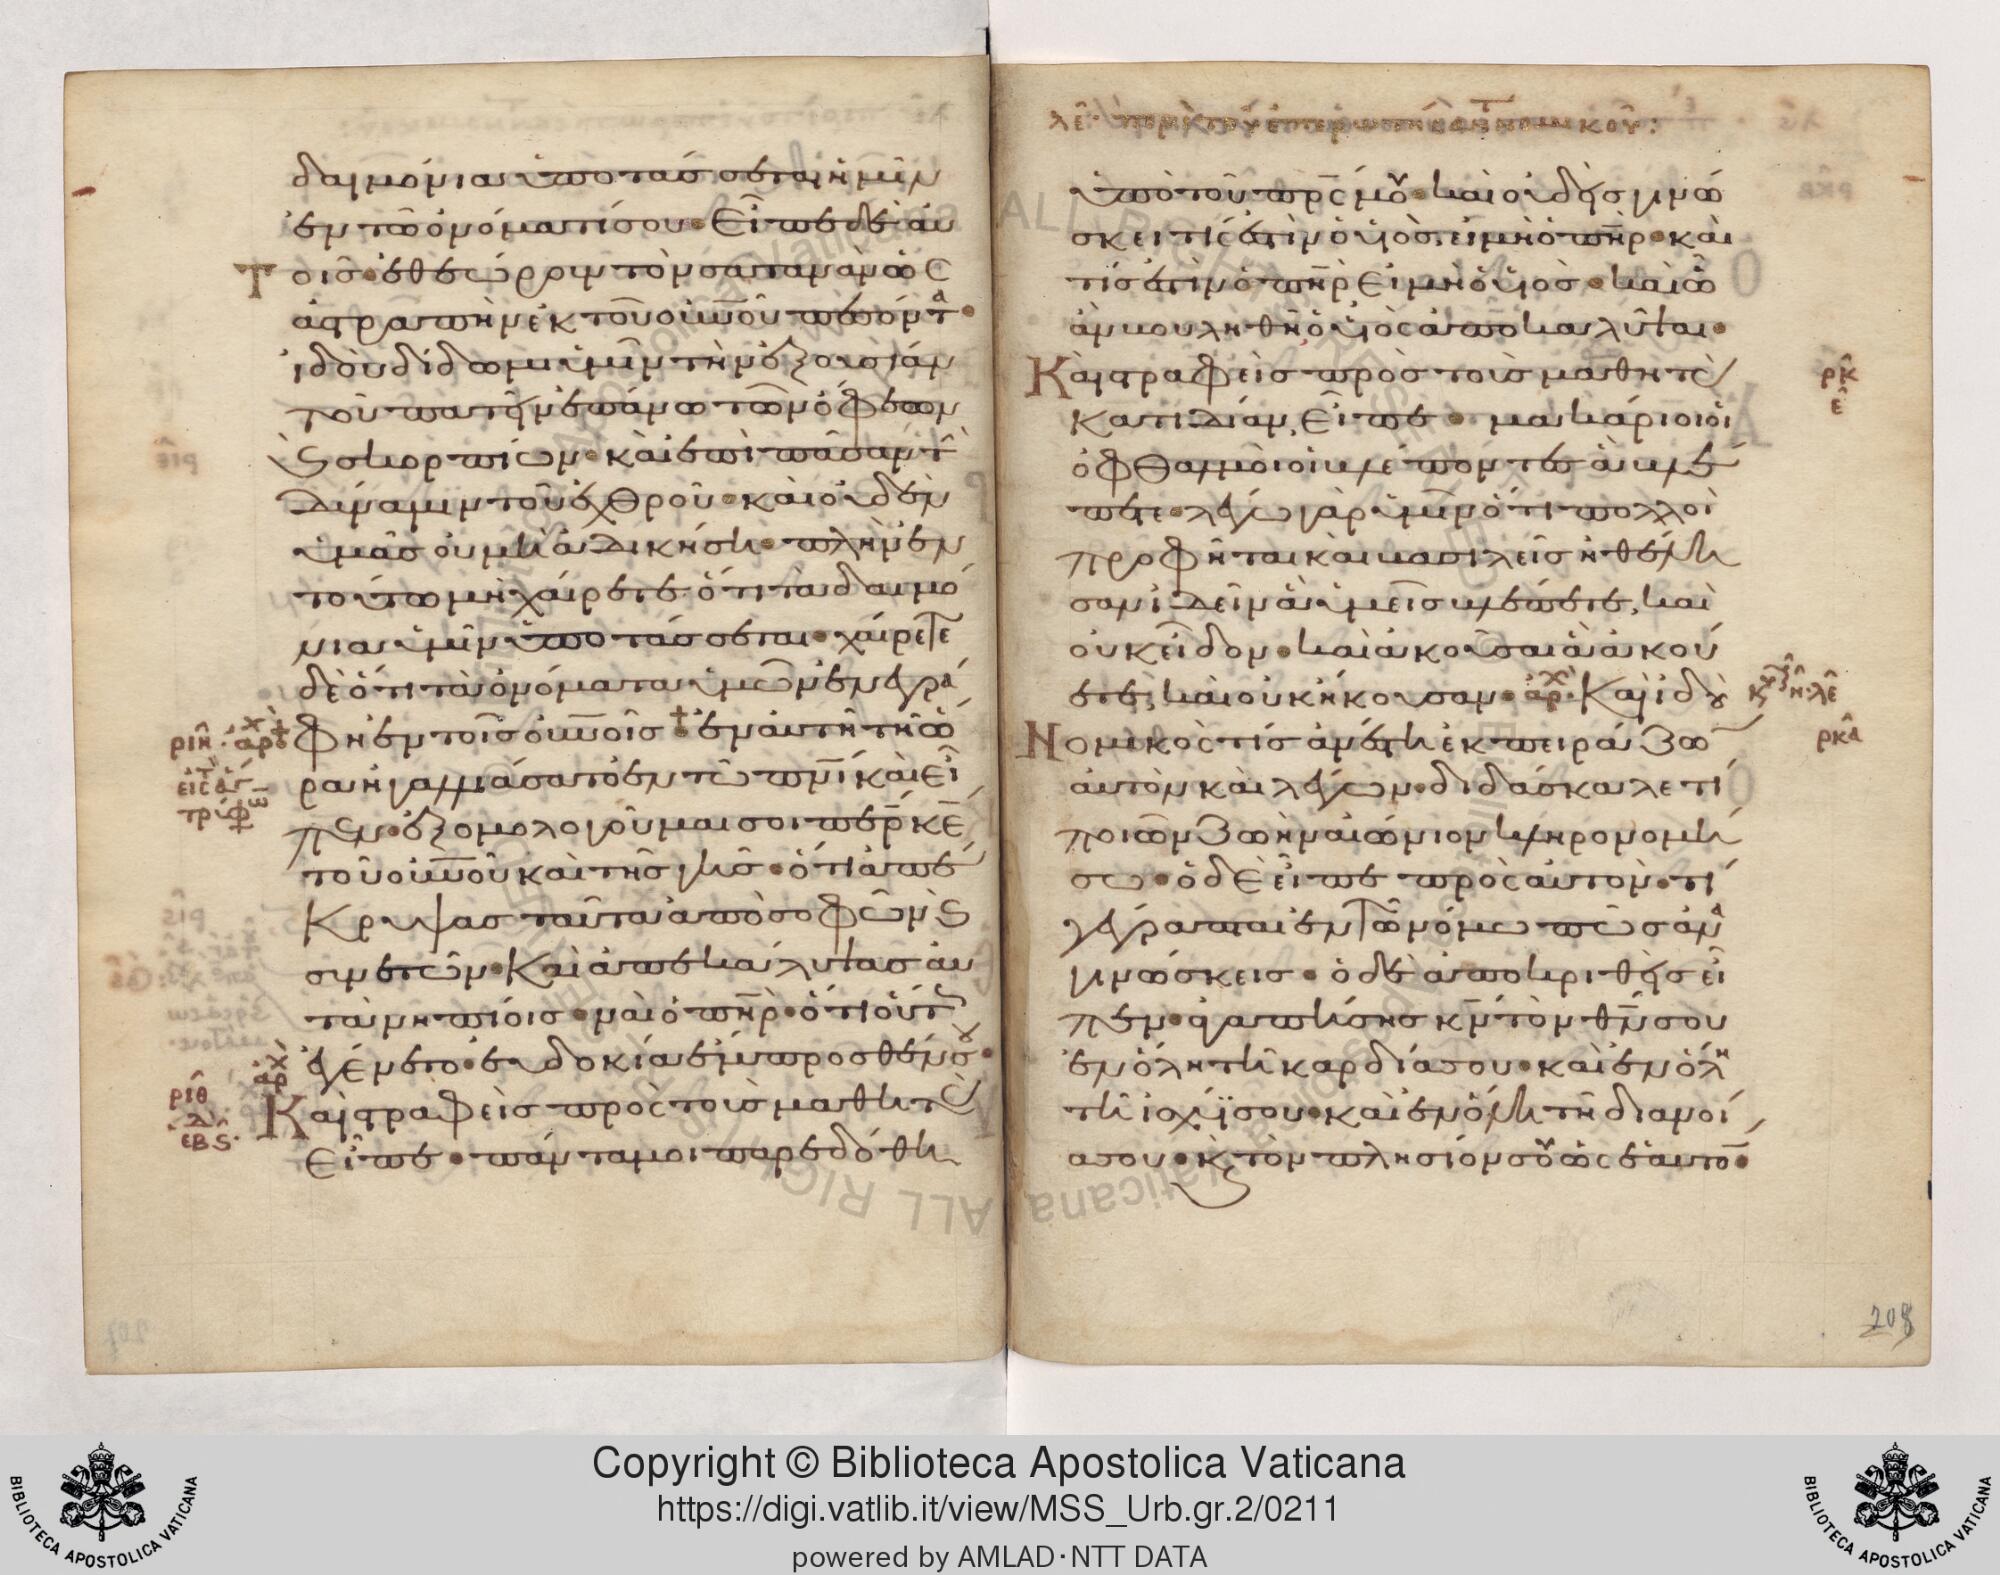 δαιμόνια ὑποτάσσεται ἡμῖν
ἐν τῷ ὀνόματί σου· Εἶπε δὲ αὐ
τοῖς· ἐθεώρουν τὸν σατανᾶν ὡς
ἀστραπὴν ἐκ τοῦ οὐνοῦ πεσόντα·
ἰδοὺ δίδωμι ὑμῖν τὴν ἐξουσίαν
τοῦ πατεῖν ἐπάνω τῶν ὄφεων
ϗ σκορπίων· καὶ ἐπὶ πᾶσαν τὴν
δύναμιν τοῦ ἐχθροῦ· καὶ οὐδὲν
ὑμᾶς οὐ μὴ ἀδικήσῃ· πλὴν ἐν
τούτω μὴ χαίρετε ὅτι τὰ δαιμό
νια ὑμῖν ὑποτάσσεται· χαίρετε
δὲ ὅτι τὰ ὀνόματα ὑμῶν ἐγρά
φη ἐν τοῖς οὐνοῖς· ἐν αὐτῇ τῇ ὥ
ρα ἠγαλλιάσατο ἐν τῶ πνι καὶ εἶ
πεν· ἐξομολογοῦμαί σοι περ κε
τοῦ οὐνοῦ καὶ τῆς γῆς· ὅτι ἀπέ
κρυψας ταῦτα ἀπὸ σοφῶν ϗ
συνετῶν· Καὶ ἀπεκάλυψας αὐ
τὰ νηπίοις· ναὶ ὁ πηρ· ὅτι οὕτως
ἐγένετο εὐδοκία ἔμπροσθέν σου·
Καὶ στραφεὶς πρὸς τοὺς μαθητὰς
εἶπε· πάντα μοι παρεδόθη
ριη· ἀρχ
ριθ
λε· περὶ τοῦ ἐπερωτήσαντος νομικοῦ:
ὑπὸ τοῦ πρς μου· καὶ οὐδεὶς γινώ
σκει τίς ἐστιν ὁ υἱὸς εἰ μὴ ὁ πηρ· καὶ
τίς ἐστιν ὁ πηρ εἰ μὴ ὁ υἱὸς· καὶ ὧ
ἂν βούληθῆ ὁ υἱὸς ἀποκαλύψαι·
Καὶ στραφεὶς πρὸς τοὺς μαθητὰς
κατιδίαν εἶπε· μακάριοι οἱ
ὀφθαλμοὶ οἱ βλέποντες ἃ βλέ
πετε· λέγω γὰρ ὑμῖν ὅτι πολλοὶ
προφῆται καὶ βασιλεῖς ἠθέλη
σαν ἰδεῖν ἃ ὑμεῖς βλέπετε, καὶ
οὐκ εἶδον· καὶ ἀκοῦσαι ἃ ἀκού
ετε, καὶ οὐκ ἤκουσαν· ἀρχ· Καὶ ἰδοὺ
Νομικός τις ἀνέστη ἐκπειράζω
αὐτὸν καὶ λέγων· διδάσκαλε τί
ποιῶν ζωὴν αἰώνιον κληρονομή
σω· ὁ δὲ εἶπε πρὸς αὐτον· τί
γέγραπται ἐν τῶ νόμω πῶς ἀνα
γινώσκεις· ὁ δὲ ἀποκριθεὶς εἶ
πεν· ἀγαπήσῃς κν τὸν θν σου
ἐν ὅλη τῆ καρδία σου· καὶ ἐν ὅλη
τῆ ἰσχύϊ σου· καὶ ἐν ὅλη τῆ διανοί
α σου· ϗ τὸν πλησίον σου ὡς ἑαυτον·
ρκ
ε
ρκα
208
Copyright © Biblioteca Apostolica Vaticana
https://digi.vatlib.it/view/MSS_Urb.gr.2/0211
powered by AMLAD·NTT DATA
BIBLIOTECA APOSTOLICA VATICANA
BIBLIOTECA APOSTOLICA VATICANA